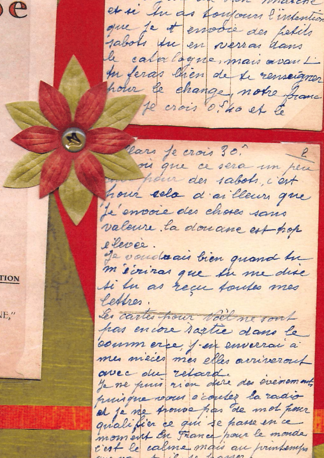 et si tu as toujours l'intention
que je t envoie des petits
sabots tu en verras dans
le catalogue, mais avant
tu feras bien de te renseigner
pour le change, notre franc
je crois 0,40 et le
je crois 30°
2
que ce sera un peu
pour des sabots, c'est
pour cela d'ailleurs que
j'envoie des choses sans
valeure, la douane est trop
élevée.
Je voudrais bien quand tu
m'écriras que tu me dise
si tu as reçu toutes mes
lettres.
Les cartes pour Noël ne sont
pas encore sortie dans le
commerce, j'en enverrai à
mes nièces mes elles arriveront
avec du retard.
Je ne puis rien dire des évènements
puisque vous écoutez la radio
et je ne trouve pas de mot pour
qualifier ce qui se passe en ce
moment En France, pour le monde
c'est le calme mais au printemps
TION
NE,"